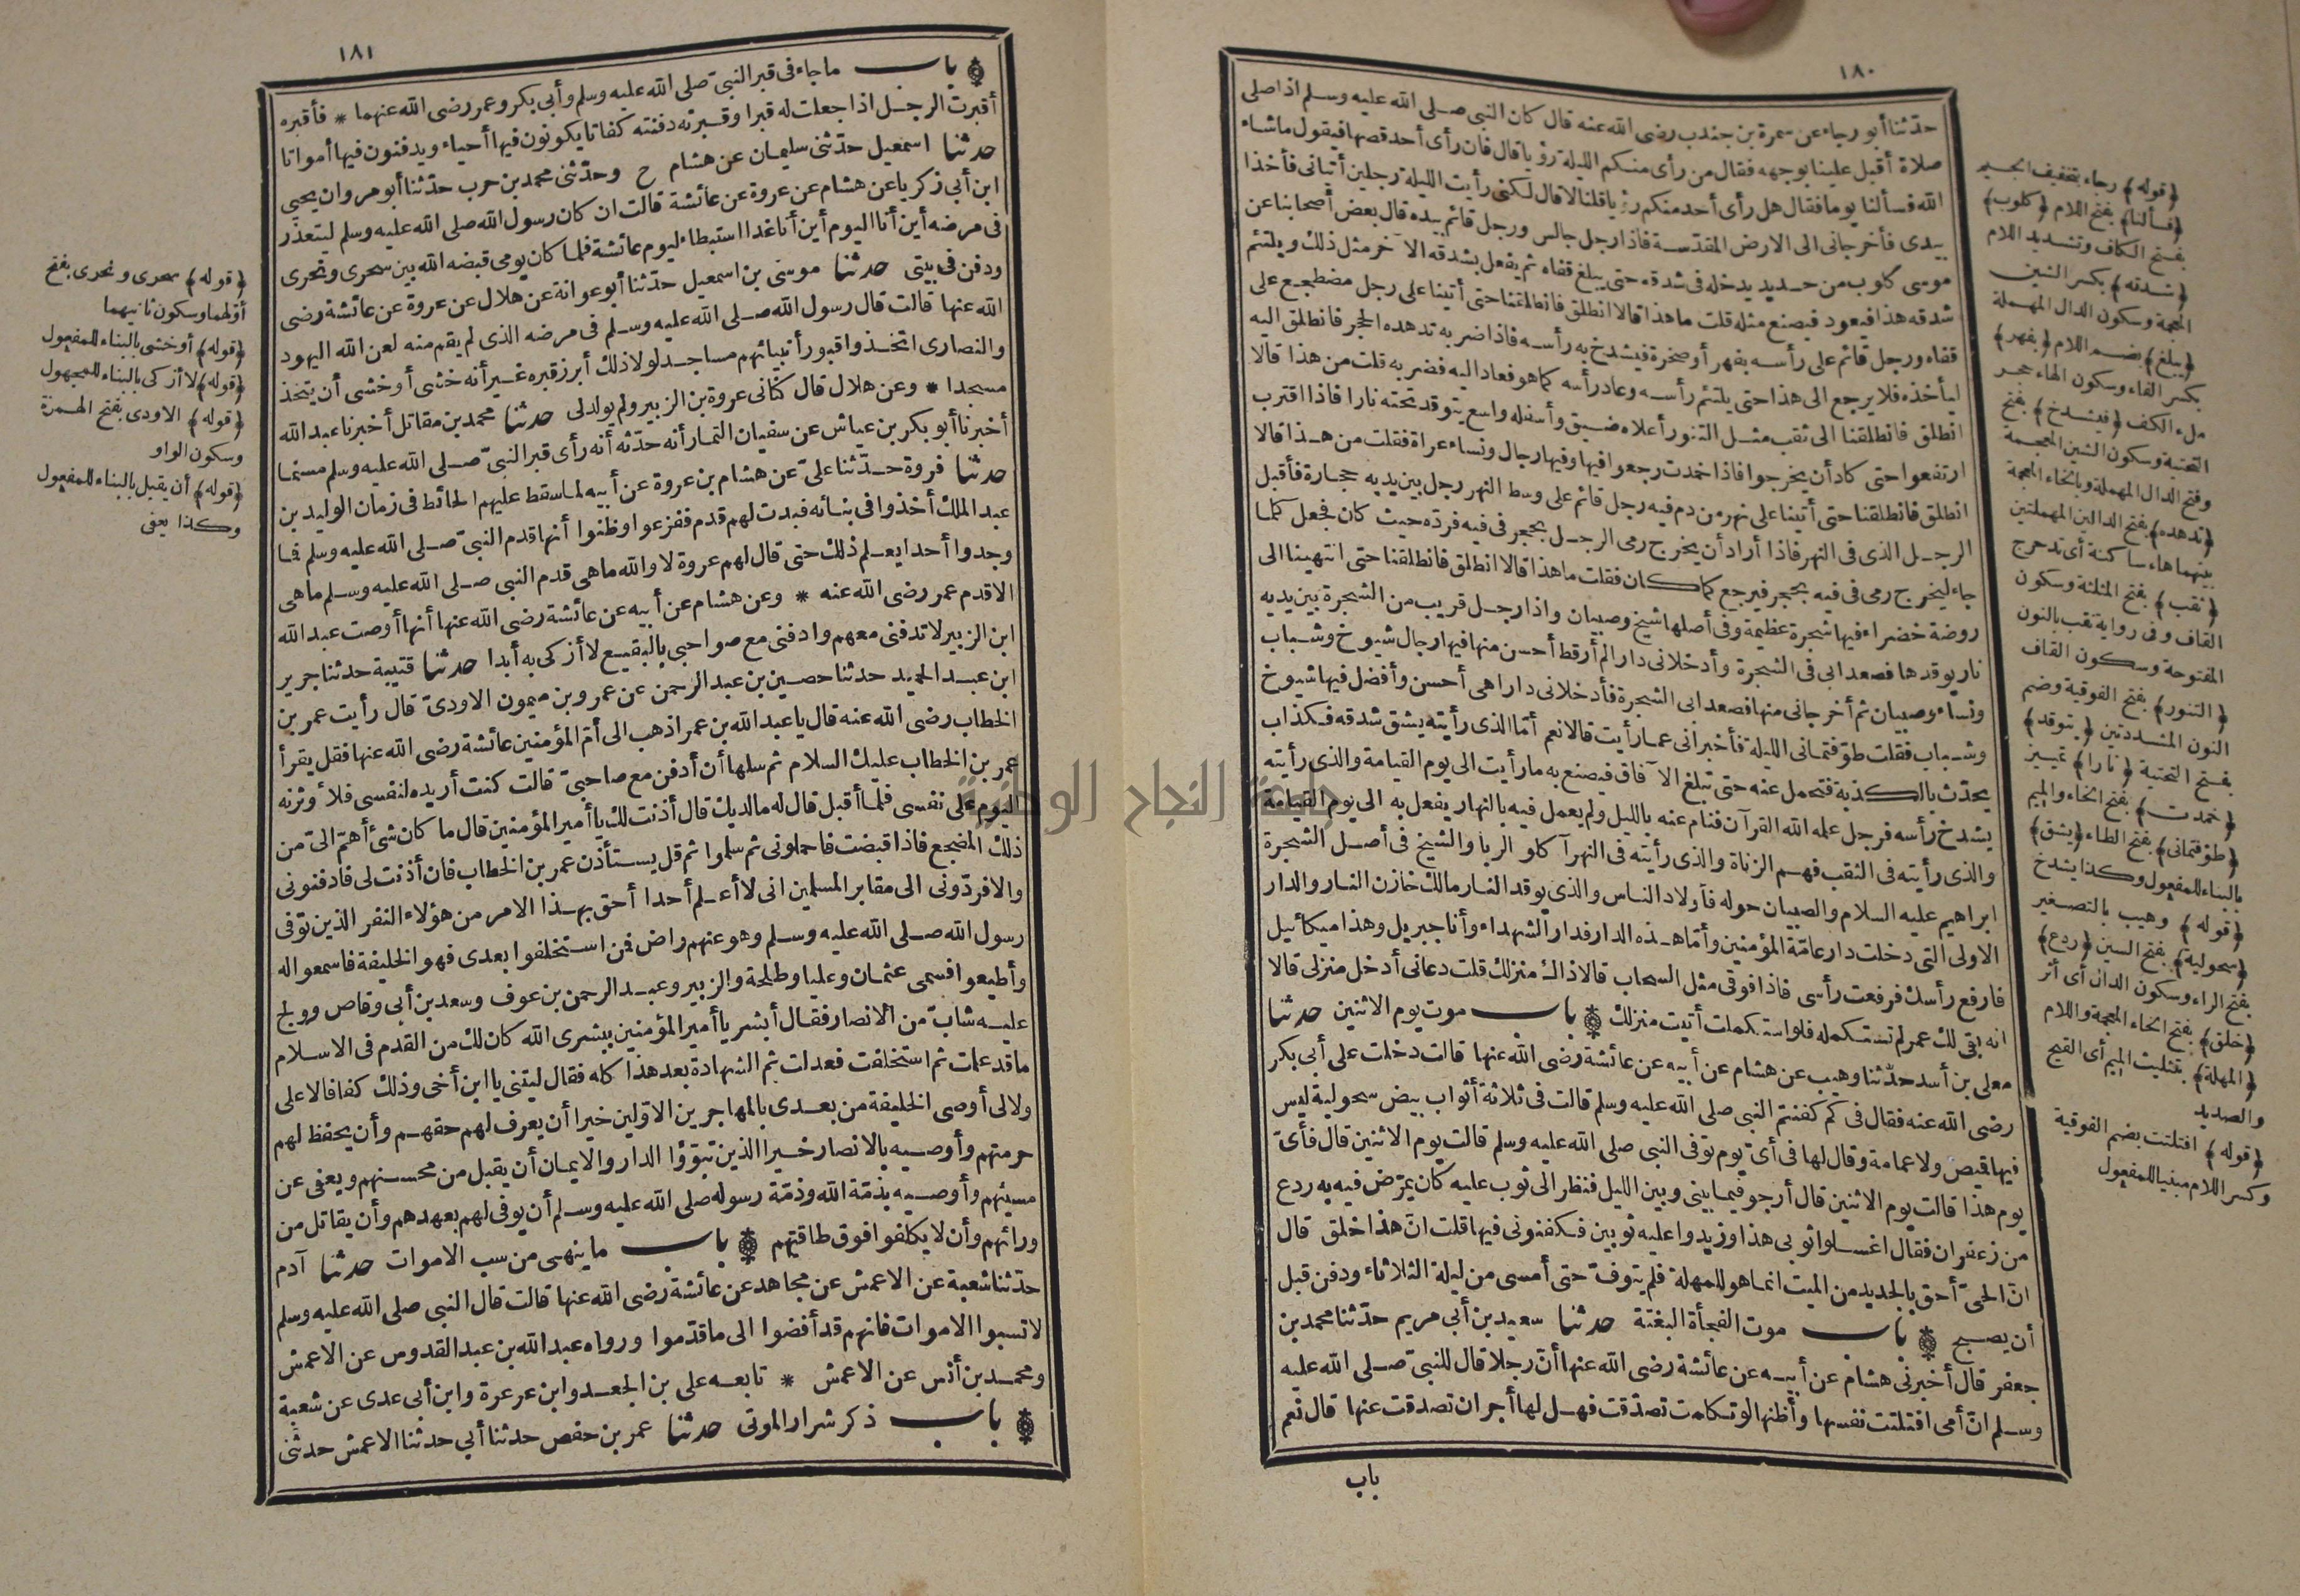 ١٨٠
حدّثنا أبو رجاء عن سمرة بن جندب رضى الله عنه قال كان النبى صلى الله عليه وسلم اذا صلى
صلاة أقبل علينا بوجهه فقال من رأى منكم الليلة رؤيا قال فان رأى أحد قصها فيقول ما شاء
الله فسألنا يوما فقال هل رأى أحد منكم رؤيا قلنا لا قال لكنى رأيت الليلة رجلين أتيانى فأخذا
بيدى فأخرجانى الى الارض المقدّسة فاذا رجل جالس ورجل قائم بيده قال بعض أصحابنا عن
موسى كلوب من حديد يدخله فى شدقه حتى يبلغ قفاه ثم يفعل بشدقه الآخر مثل ذلك ويلتئم
شدقه هذا فيعود فيصنع مثله قلت ما هذا قالا انطلق فانطلقنا حتى أتينا على رجل مضطجع على
قفاه ورجل قائم على رأسه بفهر أو صخرة فيشدخ به رأسه فاذا ضربه تدهده الحجر فانطلق اليه
ليأخذه فلا يرجع الى هذا حتى يلتئم رأسه وعاد رأسه كما هو فعاد اليه فضربه قلت من هذا قالا
انطلق فانطلقنا الى ثقب مثل التنور أعلاه ضيق وأسفله واسع يتوقد تحته نارا فاذا اقترب
ارتفعوا حتى كاد أن يخرجوا فاذا خمدت رجعوا فيها وفيها رجال ونساء عراة فقلت من هذا قالا
انطلق فانطلقنا حتى أتينا على نهر من دم فيه رجل قائم على وسط النهر رجل بين يديه حجارة فأقبل
الرجل الذى فى النهر فاذا أراد أن يخرج رمى الرجل بحجر فى فيه فردّه حيث كان فجعل كلما
جاء ليخرج رمى فى فيه بحجر فيرجع كما كان فقلت ما هذا قالا انطلق فانطلقنا حتى انتهينا الى
روضة خضراء فيها شجرة عظيمة وفى أصلها شيخ وصبيان واذا رجل قريب من الشجرة بين يديه
نار يوقدها فصعدا بى فى الشجرة وأدخلانى دارا لم أر قط أحسن منها فيها رجال شيوخ وشباب
ونساء وصبيان ثم أخرجانى منها فصعدا بى الشجرة فأدخلانى دارا هى أحسن وأفضل فيها شيوخ
وشباب فقلت طوّفتمانى الليلة فأخبرانى عما رأيت قالا نعم أمّا الذى رأيته يشق شدقه فكذاب
يحدّث بالكذبة فتحمل عنه حتى تبلغ الآفاق فيصنع به ما رأيت الى يوم القيامة والذى رأيته
يشدخ رأسه فرجل علمه الله القرآن فنام عنه بالليل ولم يعمل فيه بالنهار يفعل به الى يوم القيامة
والذى رأيته فى الثقب فهم الزناة والذى رأيته فى النهر آكلو الربا والشيخ فى أصل الشجرة
ابراهيم عليه السلام والصبيان حوله فأولاد الناس والذى يوقد النار مالك خازن النار والدار
الاولى التى دخلت دار عامّة المؤمنين وأمّا هذه الدار فدار الشهداء وأنا جبريل وهذا ميكائيل
فارفع رأسك فرفعت رأسى فاذا فوقى مثل السحاب قالا ذاك منزلك قلت دعانى أدخل منزلى قالا
انه بقى لك عمر لم تستكمله فلو استكملت أتيت منزلك باب موت يوم الاثنين حدثنا
معلى بن أسد حدّثنا وهيب عن هشام عن أبيه عن عائشة رضى الله عنها قالت دخلت على أبى بكر
رضى الله عنه فقال فى كم كفنتم النبى صلى الله عليه وسلم قالت فى ثلاثة أثواب بيض سحولية ليس
فيها قيص ولا عمامة وقال لها فى أىّ يوم توفى النبى صلى الله عليه وسلم قالت يوم الاثنين قال فأىّ
يوم هذا قالت يوم الاثنين قال أرجو فيما بينى وبين الليل فنظر الى ثوب عليه كان يمرّض فيه به ردع
من زعفران فقال اغسلوا ثوبى هذا وزيدوا عليه ثوبين فكفنونى فيها قلت انّ هذا خلق قال
انّ الحىّ أحق بالجديد من الميت انما هو للمهلة فلم يتوفّ حتى أمسى من ليلة الثلاثاء ودفن قبل
أن يصبح باب موت الفجأة البغتة حدثنا سعيد بن أبى مريم حدّثنا محمد بن
جعفر قال أخبرنى هشام عن أبيه عن عائشة رضى الله عنها أنّ رجلا قال للنبىّ صلى الله عليه
وسلم انّ أمى افتلتت نفسها وأظنها لو تكلمت تصدّقت فهل لها أجر ان تصدقت عنها قال نعم
باب
﴿قوله﴾ رجاء بتخفيف الجيم
﴿فسألنا﴾ بفتح اللام ﴿كلوب﴾
بفتح الكاف وتشديد اللام
﴿شدقه﴾ بكسر الشين
المعجمة وسكون الدال المهملة
﴿يبلغ﴾ بضم اللام ﴿بفهر﴾
بكسر الفاء وسكون الهاء حجر
ملء الكف ﴿فيشدخ﴾ بفتح
التحتية وسكون الشين المعجمة
وفتح الدال المهملة وبالخاء المعجمة
﴿تدهده﴾ بفتح الدالين المهملتين
بينهما هاء ساكنة أى تدحرج
﴿ثقب﴾ بفتح المثلثة وسكون
القاف وفى رواية نقب بالنون
المفتوحة وسكون القاف
﴿التنور﴾ بفتح الفوقية وضم
النون المشددتين ﴿يتوقد﴾
بفتح التحتية ﴿نارا﴾ تمييز
﴿خمدت﴾ بفتح الخاء والميم
﴿طوّفتمانى﴾ بفتح الطاء ﴿يشق﴾
بالبناء للمفعول وكذا يشدخ
﴿قوله﴾ وهيب بالتصغير
﴿سحولية﴾ بفتح السين ﴿ردع﴾
بفتح الراء وسكون الدال أى أثر
﴿خلق﴾ بفتح الخاء المعجمة واللام
﴿المهلة﴾ بتثليث الميم أى القيح
والصديد
﴿قوله﴾ افتلتت بضم الفوقية
وكسر اللام مبنيا للمفعول
١٨١
باب ما جاء فى قبر النبىّ صلى الله عليه وسلم وأبى بكر وعمر رضى الله عنهما * فأقبره
أقبرت الرجل اذا جعلت له قبرا وقبرته دفنته كفاتا يكونون فيها أحياء ويدفنون فيها أمواتا
حدثنا اسمعيل حدّثنى سليمان عن هشام ح وحدّثنى محمد بن حرب حدّثنا أبو مروان يحيى
ابن أبى زكريا عن هشام عن عروة عن عائشة قالت ان كان رسول الله صلى الله عليه وسلم ليتعذر
فى مرضه أين أنا اليوم أين أنا غدا استبطاء ليوم عائشة فلما كان يومى قبضه الله بين سحرى ونحرى
ودفن فى بيتى حدثنا موسى بن اسمعيل حدّثنا أبو عوانة عن هلال عن عروة عن عائشة رضى
الله عنها قالت قال رسول الله صلى الله عليه وسلم فى مرضه الذى لم يقم منه لعن الله اليهود
والنصارى اتخذوا قبور أنبيائهم مساجد لولا ذلك أبرز قبره غير أنه خشى أو خشى أن يتخذ
مسجدا * وعن هلال قال كنّانى عروة بن الزبير ولم يولد لى حدثنا محمد بن مقاتل أخبرنا عبد الله
أخبرنا أبو بكر بن عياش عن سفيان التمار أنه حدّثه أنه رأى قبر النبىّ صلى الله عليه وسلم مسنما
حدثنا فروة حدّثنا علىّ عن هشام بن عروة عن أبيه لما سقط عليهم الحائط فى زمان الوليد بن
عبد الملك أخذوا فى بنائه فبدت لهم قدم ففزعوا وظنوا أنها قدم النبىّ صلى الله عليه وسلم فما
وجدوا أحدا يعلم ذلك حتى قال لهم عروة لا والله ما هى قدم النبى صلى الله عليه وسلم ما هى
الا قدم عمر رضى الله عنه * وعن هشام عن أبيه عن عائشة رضى الله عنها أنها أوصت عبد الله
ابن الزبير لا تدفنى معهم وادفنى مع صواحبى بالبقيع لا أزكى به أبدا حدثنا قتيبة حدثنا جرير
ابن عبد الحميد حدثنا حصين بن عبد الرحمن عن عمرو بن ميمون الاودىّ قال رأيت عمر بن
الخطاب رضى الله عنه قال يا عبد الله بن عمر اذهب الى أمّ المؤمنين عائشة رضى الله عنها فقل يقرأ
عمر بن الخطاب عليك السلام ثم سلها أن أدفن مع صاحبىّ قالت كنت أريده لنفسى فلأوثرنه
اليوم على نفسى فلما أقبل قال له ما لديك قال أذنت لك يا أمير المؤمنين قال ما كان شئ أهمّ الىّ من
ذلك المضجع فاذا قبضت فاحملونى ثم سلموا ثم قل يستأذن عمر بن الخطاب فان أذنت لى فادفنونى
والا فردّونى الى مقابر المسلمين انى لا أعلم أحدا أحق بهذا الامر من هؤلاء النفر الذين توفى
رسول الله صلى الله عليه وسلم وهو عنهم راض فمن استخلفوا بعدى فهو الخليفة فاسمعوا له
وأطيعوا فسمى عثمان وعليا وطلحة والزبير وعبد الرحمن بن عوف وسعد بن أبى وقاص وولج
عليه شابّ من الانصار فقال أبشر يا أمير المؤمنين ببشرى الله كان لك من القدم فى الاسلام
ما قد علمت ثم استخلفت فعدلت ثم الشهادة بعد هذا كله فقال ليتنى يا ابن أخى وذلك كفافا لا على
ولا لى أوصى الخليفة من بعدى بالمهاجرين الاوّلين خيرا أن يعرف لهم حقهم وأن يحفظ لهم
حرمتهم وأوصيه بالانصار خيرا الذين تبوّؤا الدار والايمان أن يقبل من محسنهم ويعفى عن
مسيئهم وأوصيه بذمّة الله وذمّة رسوله صلى الله عليه وسلم أن يوفى لهم بعهدهم وأن يقاتل من
ورائهم وأن لا يكلفوا فوق طاقتهم باب ما ينهى من سب الاموات حدثنا آدم
حدّثنا شعبة عن الاعمش عن مجاهد عن عائشة رضى الله عنها قالت قال النبى صلى الله عليه وسلم
لا تسبوا الاموات فانهم قد أفضوا الى ما قدّموا ورواه عبد الله بن عبد القدوس عن الاعمش
ومحمد بن أنس عن الاعمش * تابعه على بن الجعد وابن عرعرة وابن أبى عدى عن شعبة
باب ذكر شرار الموتى حدثنا عمر بن حفص حدثنا أبي حدثنا الاعمش حدثنى
﴿قوله﴾ سحرى ونحرى بفتح
أوّلهما وسكون ثانيهما
﴿قوله﴾ أو خشى بالبناء للمفعول
﴿قوله﴾ لا أزكى بالبناء للمجهول
﴿قوله﴾ الاودى بفتح الهمزة
وسكون الواو
﴿قوله﴾ أن يقبل بالبناء للمفعول
وكذا يعفى
النجاح الوطنية